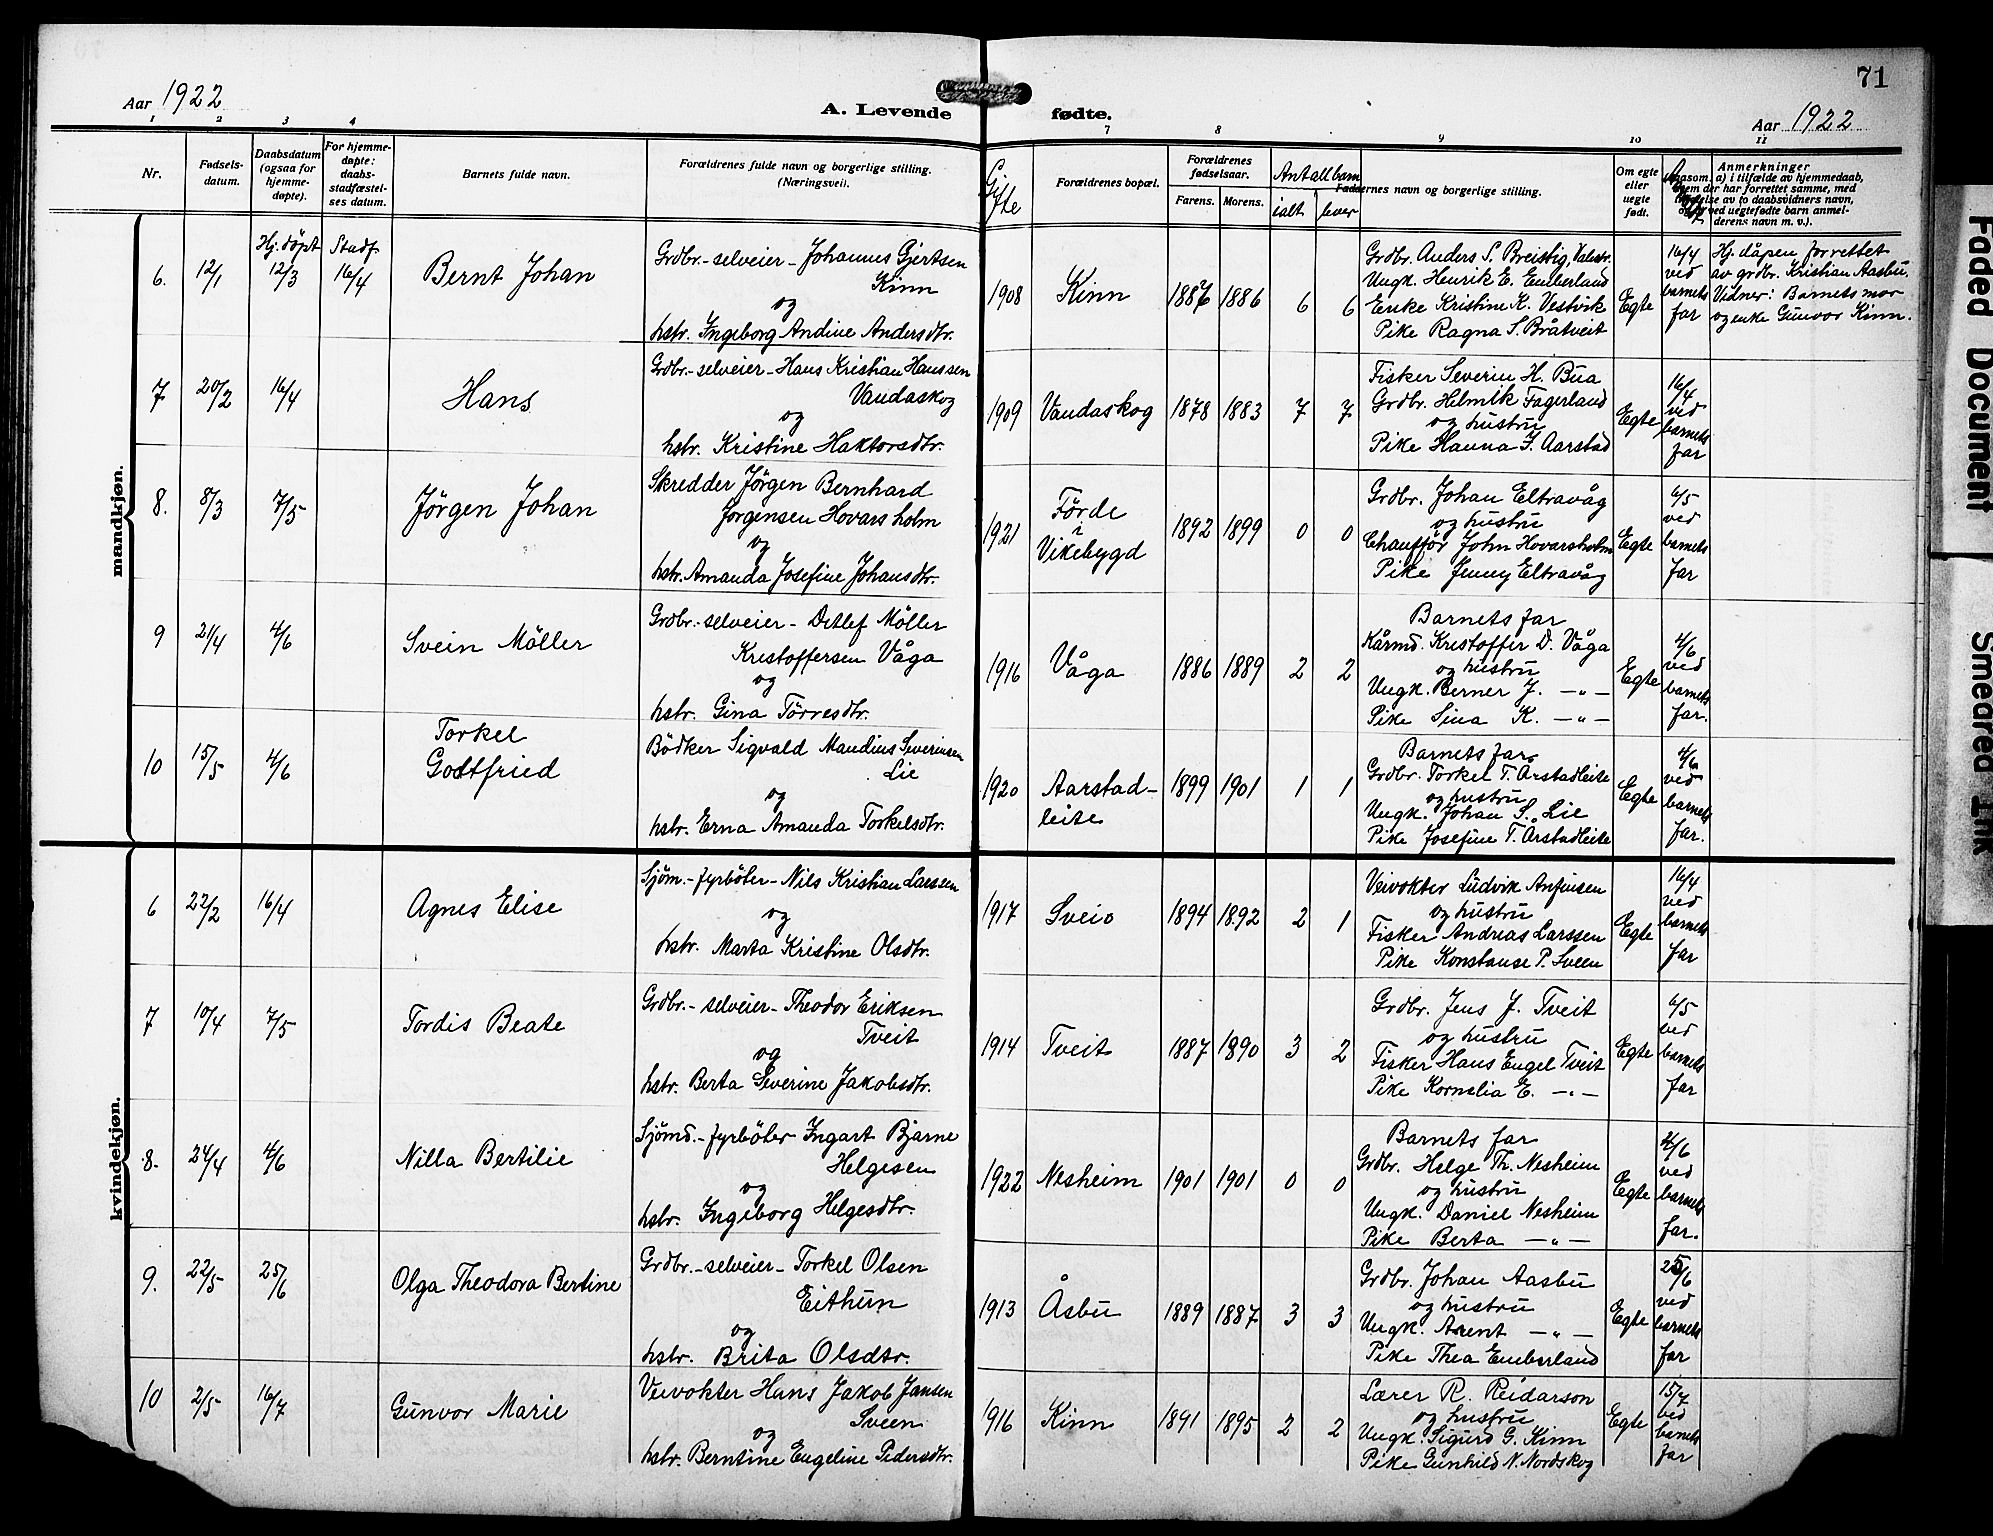 71
Aar 1922
A. Levende fødte.
Aar 1922
1 2 3 4 7 8 9 10 11
Nr.
Fødsels-
datum.
Daabsdatum
(ogsaa for
hjemme-
døpte).
For hjemme-
døpte:
daabs-
stadfæstel-
ses datum.
Barnets fulde navn.
Forældrenes fulde navn og borgerlige stilling.
(Næringsveil).
Gifte
Forældrenes bopæl.
Forældrenes
fødselsaar.
Farens. Morens.
Antall barn
ialt lever
Faddernes navn og borgerlige stilling.
Om egte
eller
uegte
født.
Anmerkninger
a) i tilfælde av hjemmedaab,
hvem der har forrettet samme, med
av to daabsvidners navn,
ved uegtefødte barn anmel-
derens navn m. v.).
mandkjøn.
6. 12/1
Hj. döpt
12/3
Stadf.
16/4
Bernt Johan
Grdbr.-selveier- Johannes Gjertsen
Kinn
og
hstr. Ingeborg Andine Andersdtr.
1908 Kinn 1887 1886 6 6
Grdbr. Anders S. Breistig, Valestr.
Ungk. Henrik E. Emberland
Enke Kristine K. Vestvik
Pike Ragna S. Båtveit
Egte
16/4
ved
barnets
far
Hj. dåpen forrettet
av grdbr. Kristian Aasbu.
Vidner: Barnets mor
og enke Gunvor Kinn.
7 20/2 16/4 Hans
Grdbr.-selveier- Hans Kristian Hanssen
Vandaskog
og
hstr. Kristine Haktorsdtr.
1909 Vandaskog 1878 1883 7 7
Fisker Severin H. Bua
Grdbr. Helmik Fagerland
og hustru
Pike Hanna J. Aarstad
Egte
16/4
ved
barnets
far
8. 8/3 7/5 Jörgen Johan
Skredder Jörgen Bernhard
Jörgensen Hovarsholm
og
hstr. Amanda Josefine Johansdtr.
1921
Förde
i
Vikebygd
1892 1899 0 0
Grdbr. Johan Eltravåg
og hustru
Chaufför John Hovarsholm
Pike Jenny Eltravåg
Egte
6/5
ved
barnets
far
9 21/4 4/6 Svein Möller
Grdbr.-selveier- Detlef Möller
Kristoffersen Våga
og
hstr. Gina Törresdtr.
1916 Våga 1886 1889 2 2
Barnets far
Kårmd. Kristoffer D. Våga
og hustru
Ungk. Berner J. -"-
Pike Sina K. -"-
Egte
4/6
ved
barnets
far.
10 15/5 4/6
Torkel
Gottfried
Bödker Sigvald Mandius Severinsen
Lie
og
hstr. Erna Amanda Torkelsdtr.
1920
Aarstad-
leite
1899 1901 1 1
Barnets far
Grdbr. Torkel T. Arstadleite
og hustru
Ungk. Johan S. Lie
Pike Josefine T. Arstadleite
Egte
4/6
ved
barnets
far.
kvindekjøn.
6 22/2 16/4 Agnes Elise
Sjöm.-fyrböter- Nils Kristian Larssen
og
hstr. Marta Kristine Olsdtr.
1917 Sveio 1894 1892 2 1
Veivokter Ludvik Anfinsen
og hustru
Fisker Andreas Larssen
Pike Konstanse P. Sveen
Egte
16/4
ved
barnets
far
7 10/4 7/5 Tordis Beate
Grdbr.-selveier- Theodor Eriksen
Tveit
og
hstr. Berta Severine Jakobsdtr.
1914 Tveit 1887 1890 3 2
Grdbr. Jens J. Tveit
og hustru
Fisker Hans Engel Tveit
Pike Kornelia E. -"-
Egte
6/5
ved
barnets
far
8. 24/4 4/6 Nilla Bertilie
Sjömd.-fyrböter Ingart Bjarne
Helgesen
og
hstr. Ingeborg Helgesdtr.
1922 Nesheim 1901 1901 0 0
Barnets far
Grdbr. Helge Th. Nesheim
og hustru
Ungk. Daniel Nesheim
Pike Berta -"-
Egte
4/6
ved
barnets
far.
9. 22/5 25/6 Olga Theodora Bertine
Grdbr.-selveier- Torkel Olsen
Eithun
og
hstr. Brita Olsdtr.
1913 Åsbu 1889 1887 3 3
Grdbr. Johan Aasbu
og hustru
Ungk. Arent -"-
Pike Thea Emberland
Egte
25/6
ved
barnets
far
10 2/5 16/7 Gunvor Marie
Veivokter Hans Jakob Jansen
Sveen
og
hstr. Berntine Engeline Pedersdtr.
1916 Kinn 1891 1895 2 2
Lærer R. Reidarson
og hustru
Ungk. Sigurd G. Kinn
Pike Gunhild N. Nordskog
Egte
15/7
ved
barnets
far
Faded Document
Smeared Ink